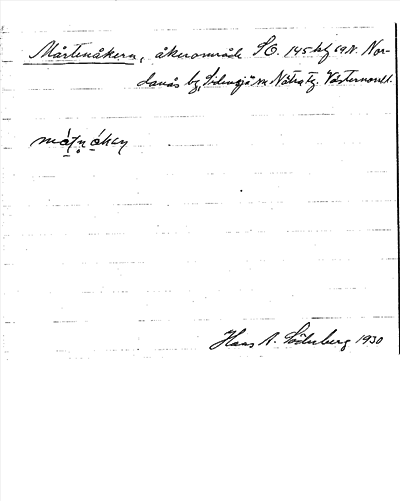 Mårtenåkern, åkerområde SO. 145 hfg 69N. Nor-
danås by, Sidensjö sn Nätra tg. Västernorrl.
Hans A. Söderberg 1930